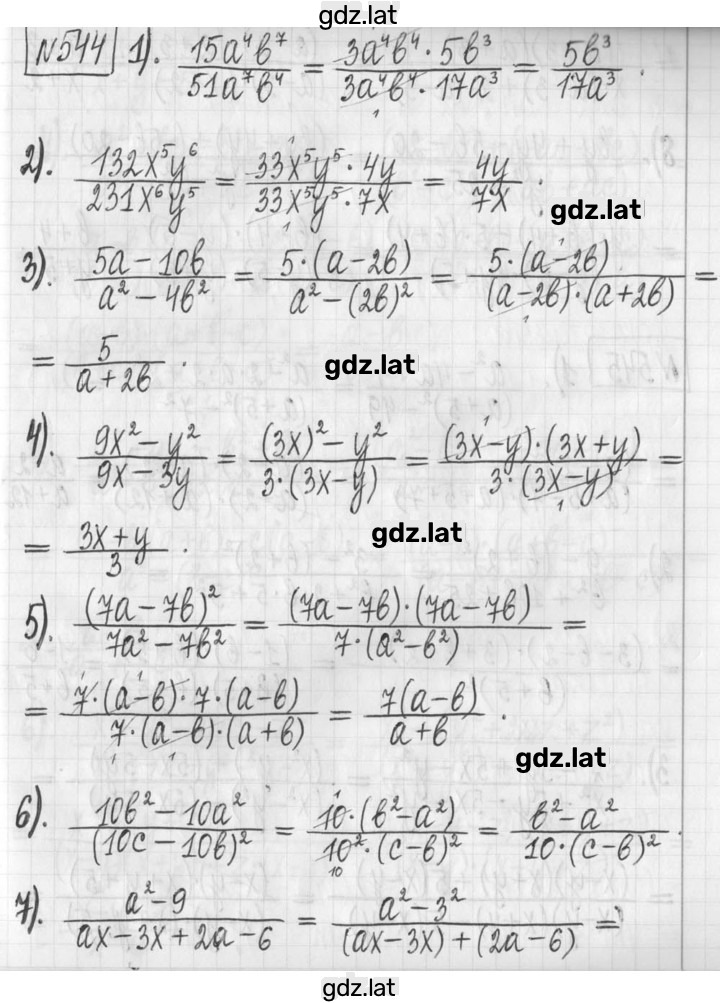 gdz.lat
№544 1). 15a⁴b⁷/51a⁷b⁴ = 3a⁴b⁴·5b³/3a⁴b⁴·17a³ = 5b³/17a³.
2). 132x⁵y⁶/231x⁶y⁵ = 33x⁵y⁵·4y/33x⁵y⁵·7x = 4y/7x.
gdz.lat
3). 5a-10b/a²-4b² = 5·(a-2b)/a²-(2b)² = 5·(a-2b)/(a-2b)·(a+2b) =
= 5/a+2b.
gdz.lat
4). 9x²-y²/9x-3y = (3x)²-y²/3·(3x-y) = (3x-y)·(3x+y)/3·(3x-y) =
gdz.lat
= 3x+y/3.
5). (7a-7b)²/7a²-7b² = (7a-7b)·(7a-7b)/7·(a²-b²) =
= 7·(a-b)·7·(a-b)/7·(a-b)·(a+b) = 7(a-b)/a+b.
gdz.lat
6). 10b²-10a²/(10c-10b)² = 10·(b²-a²)/10²·(c-b)² = b²-a²/10·(c-b)².
7). a²-9/ax-3x+2a-6 = a²-3²/(ax-3x)+(2a-6) =
gdz.lat